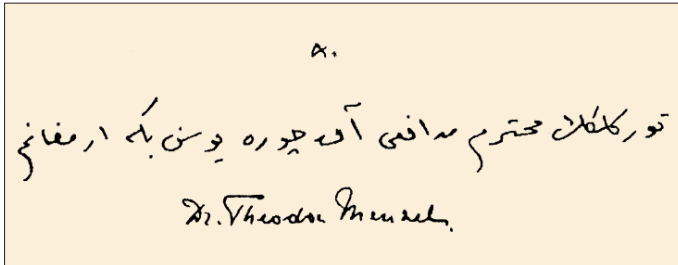 تورکلکك محترم مدافعی آقچوره یوسف بکه ارمغانم
Dr. Theodor Menzel.